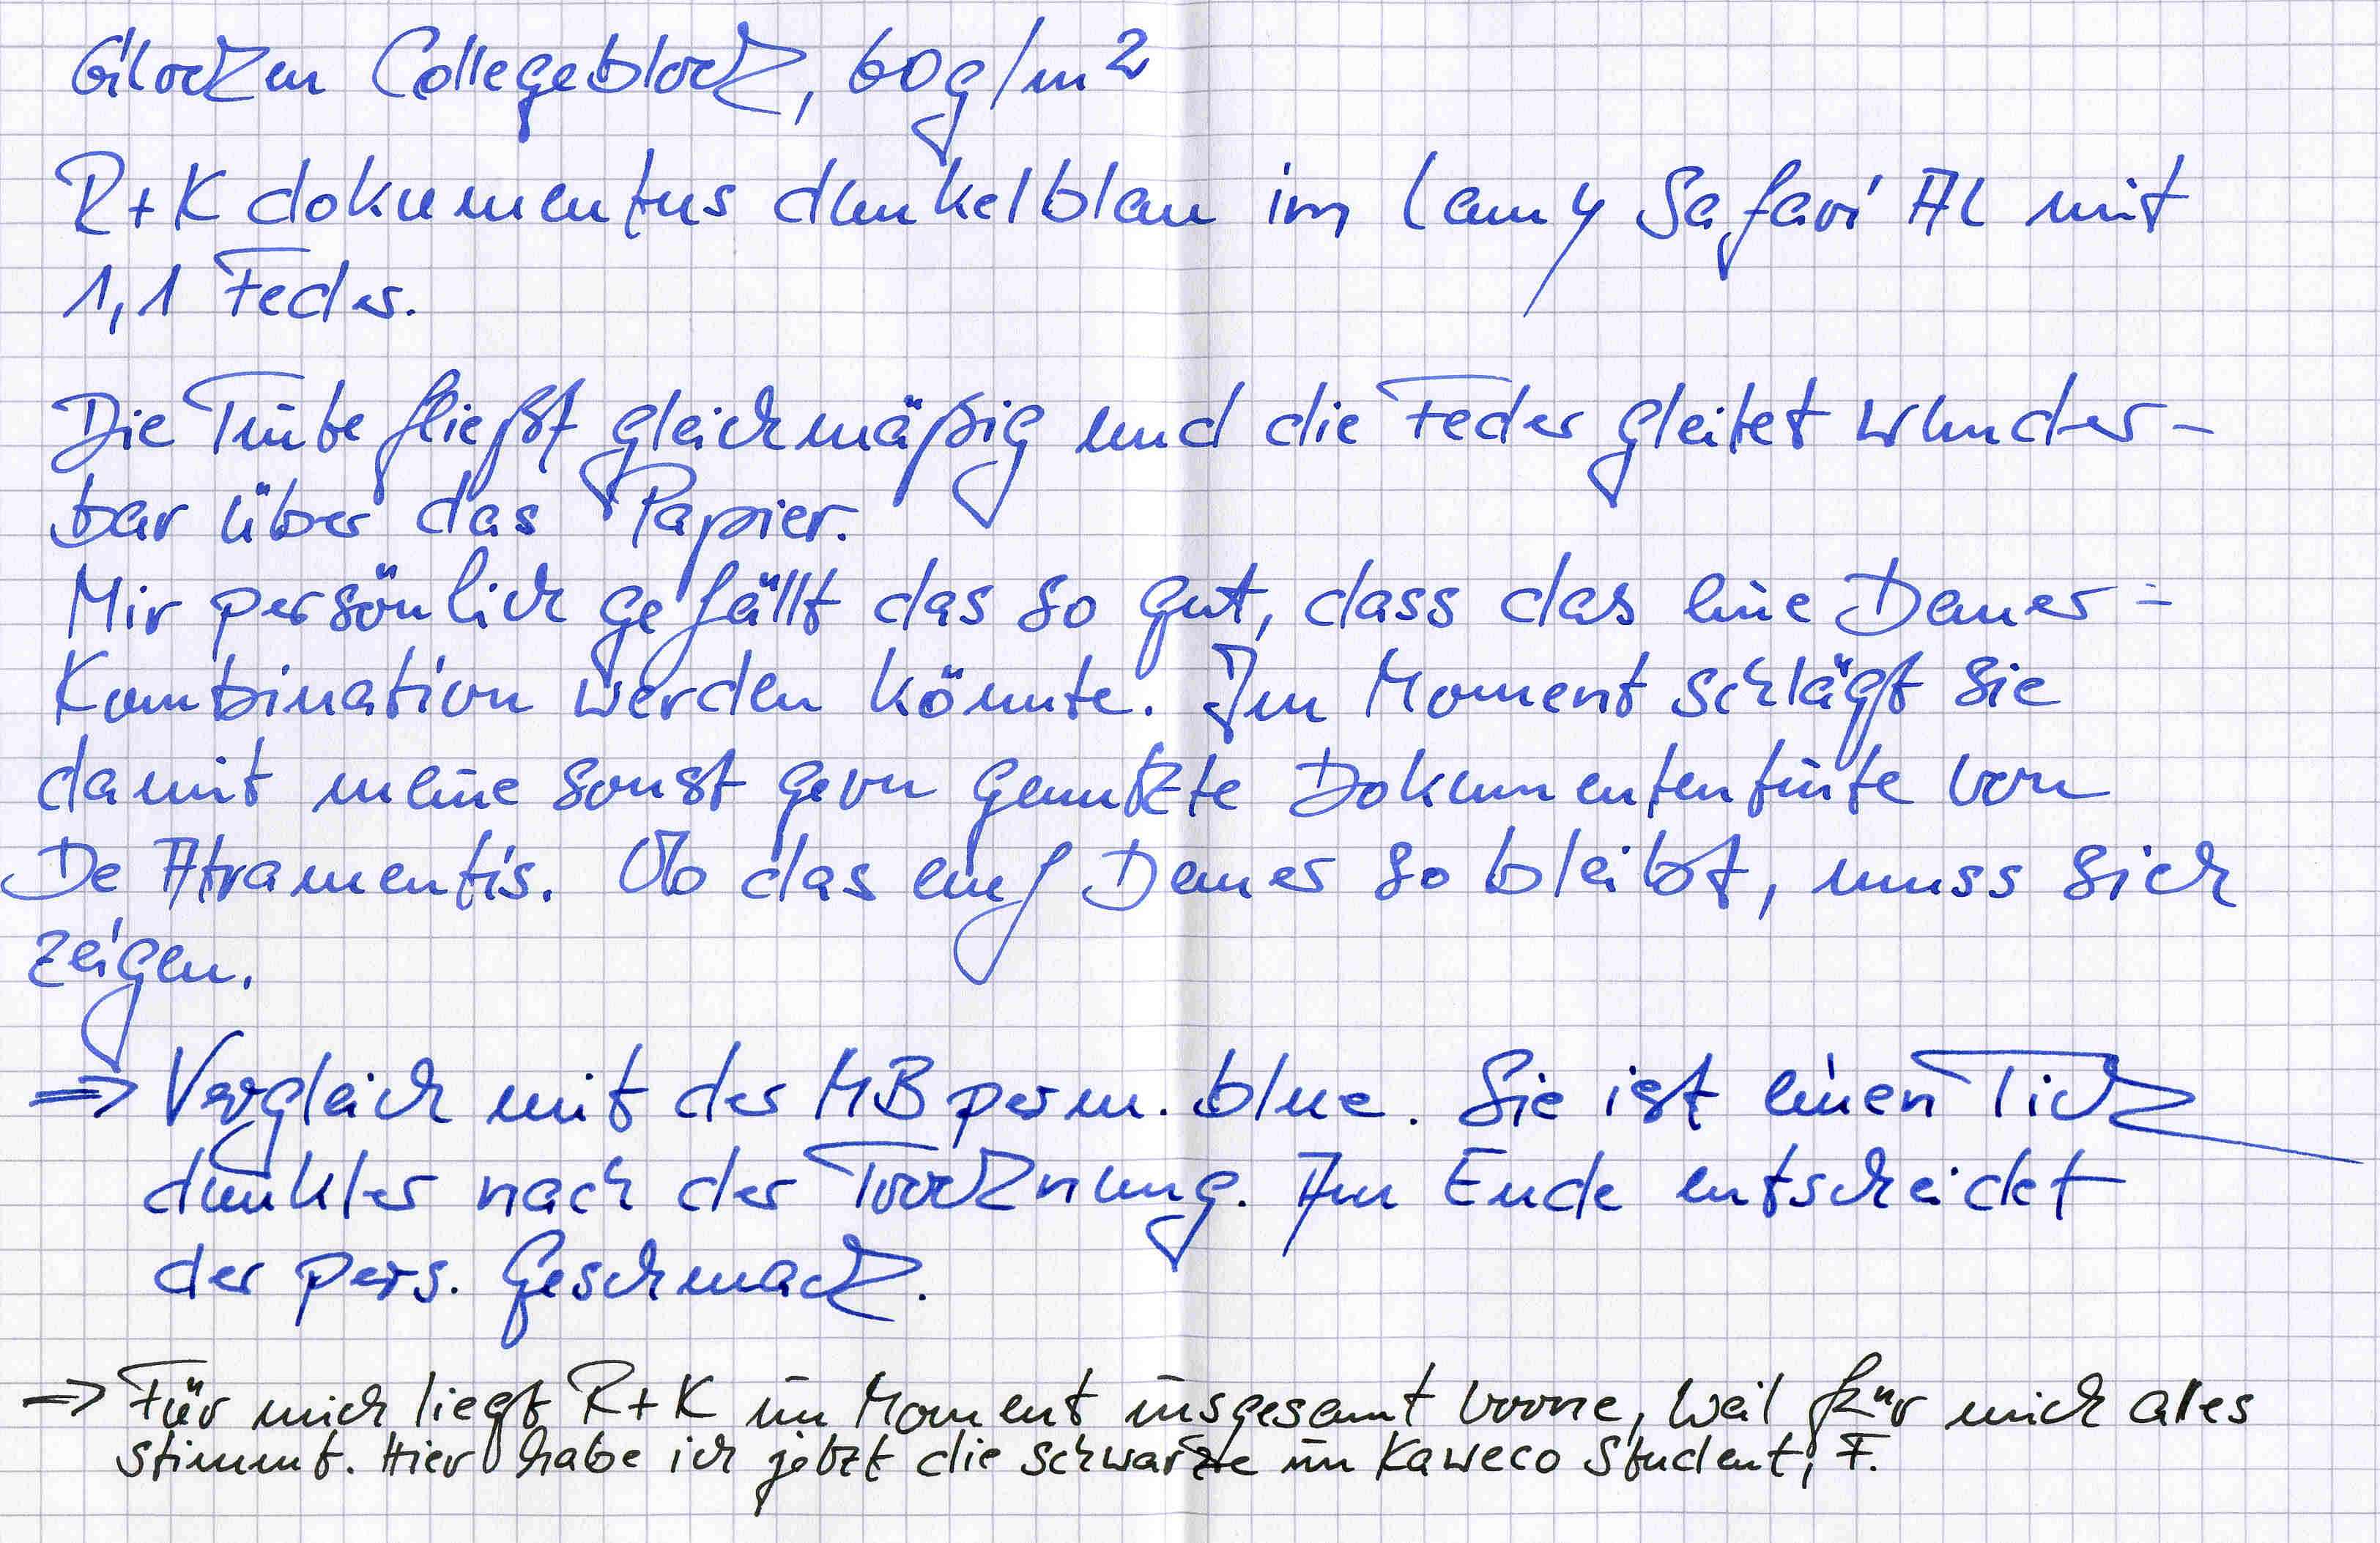 Glocken Collegeblock, 60g/m²
R+K dokumentus dunkelblau im Lamy Safari AL mit
1,1 Feder.
Die Tinte fließt gleichmäßig und die Feder gleitet wunder-
bar über das Papier.
Mir persönlich gefällt das so gut, dass das eine Dauer=
Kombination werden könnte. Im Moment schlägt sie
damit meine sonst gern genutzte Dokumententinte von
De Atramentis. Ob das auf Dauer so bleibt, muss sich
zeigen.
=> Vergleich mit der MB perm. blue. Sie ist einen Tick
dunkler nach der Trocknung. Am Ende entscheidet
der pers. Geschmack.
=> Für mich liegt R+K im Moment insgesamt vorne, weil für mich alles
stimmt. Hier habe ich jetzt die schwarze im Kaweco Student, F.